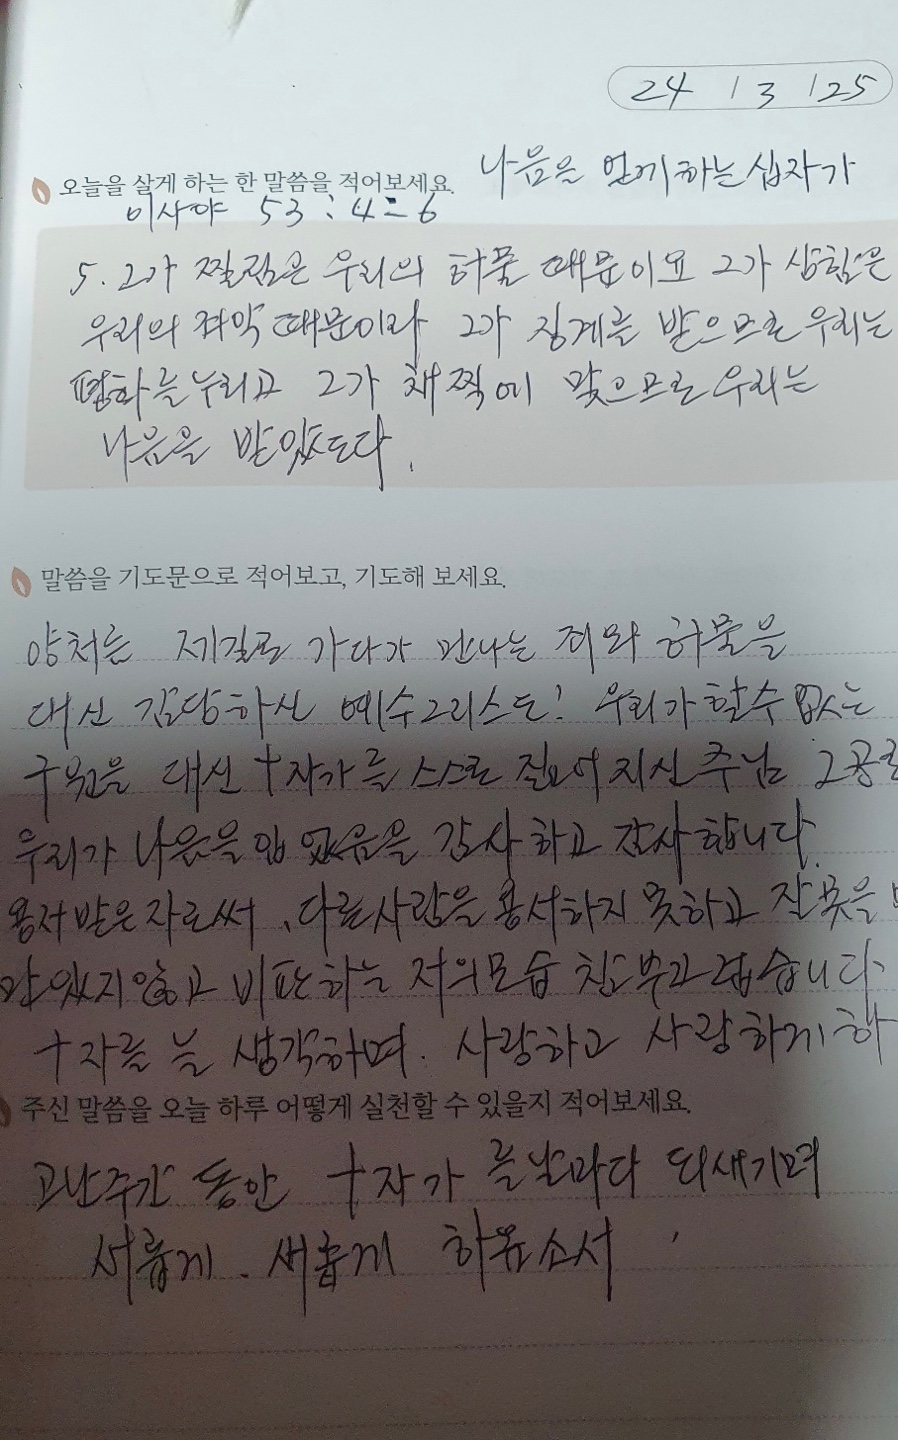 24 / 3 / 25
나음을 얻게하는 십자가
오늘을 살게 하는 한 말씀을 적어보세요.
이사야 53 : 4-6
5. 그가 찔림은 우리의 허물 때문이요 그가 상함은
우리의 죄악 때문이라 그가 징계를 받으므로 우리는
평화를 누리고 그가 채찍에 맞으므로 우리는
나음을 받았도다.
말씀을 기도문으로 적어보고, 기도해 보세요.
양처럼 제길로 가다가 만나는 죄와 허물을
대신 감당하신 예수그리스도! 우리가 할수 없는
구원을 대신 十자가를 스스로 짊어지신 주님 그공로
우리가 나음을 입었음을 감사하고 감사합니다.
용서 받은자로써, 다른사람을 용서하지 못하고 잘못을
않고 비판하는 저의모습 참 부끄럽습니다
十자를 늘 생각하며. 사랑하고 사랑하게하
주신 말씀을 오늘 하루 어떻게 실천할 수 있을지 적어보세요.
고난주간 동안 十자가를 날마다 되새기며
새롭게 하옵소서